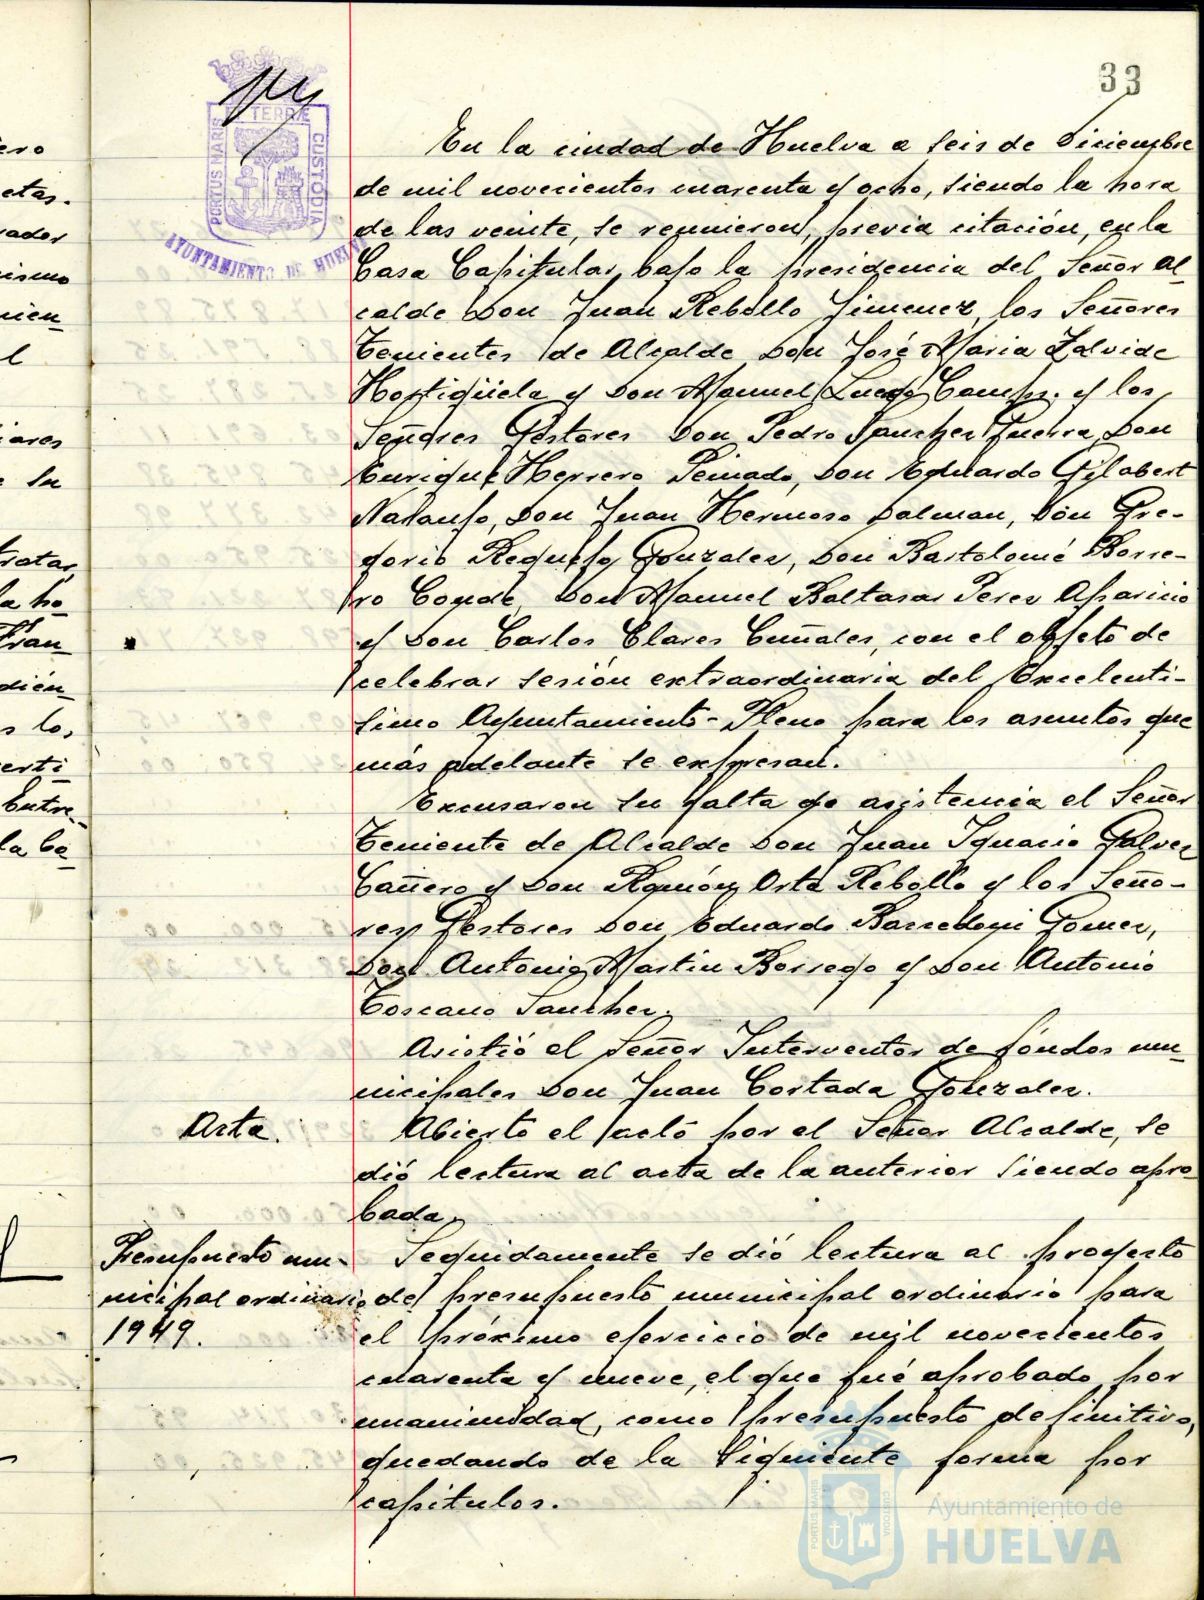 33
PORTUS MARIS
ET TERRÆ
CUSTODIA
AYUNTAMIENTO DE HUELVA
En la ciudad de Huelva a seis de Diciembre
de mil novecientos cuarenta y ocho, siendo la hora
de las veinte, se reunieron, previa citación, en la
Casa Capitular, bajo la presidencia del Señor Al-
calde Don Juan Rebollo Jimenez, los Señores
Tenientes de Alcalde Don José Maria Zalvide
Hortigüela y Don Manuel Luego Camps. y los
Señores Gestores Don Pedro Sanchez Guerra, Don
Enrique Herrero Peinado, Don Eduardo Gilabert
Naranjo, Don Juan Hermoso Dalman, Don Gre-
gorio Requejo Gonzalez, Don Bartolomé Borre-
ro Conde, Don Manuel Baltasar Perez Aparicio
y Don Carlos Clares Cuñales, con el objeto de
celebrar sesión extraordinaria del Excelenti-
simo Ayuntamiento-Pleno para los asuntos que
más adelante se expresan.
Excusaron su falta de asistencia el Señor
Teniente de Alcalde Don Juan Ignacio Galvez
Cañero y Don Ramón Orta Rebollo y los Seño-
res Gestores Don Eduardo Gomez,
Don Antonio Martin Borrego y Don Antonio
Toscano Sanchez.
Asistió el Señor Interventor de fóndos mu-
nicipales Don Juan Cortada Gonzalez.
Acta.
Abierto el acto por el Señor Alcalde, se
dió lectura al acta de la anterior siendo apro-
bada.
Presupuesto mu-
nicipal ordinario
1949.
Seguidamente se dió lectura al proyecto
de presupuesto municipal ordinario para
el próximo ejercicio de mil novecientos
cuarenta y nueve, el que fué aprobado por
unanimidad, como presupuesto definitivo,
quedando de la siguiente forma por
capitulos.
PORTUS MARIS
CUSTODIA
Ayuntamiento de
HUELVA